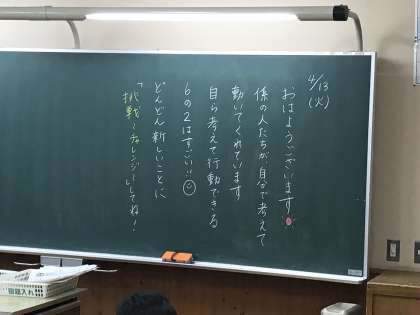 4/13
(火)
おはようございます
係の人たちが自分で考えて
動いてくれています
自ら考えて行動できる
6の2はすごい!!
どんどん新しいことに
「挑戦〜チャレンジ〜」してね!